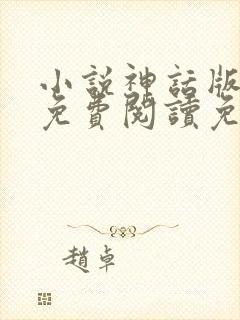 小說神話版
免費閱讀免
趙卓